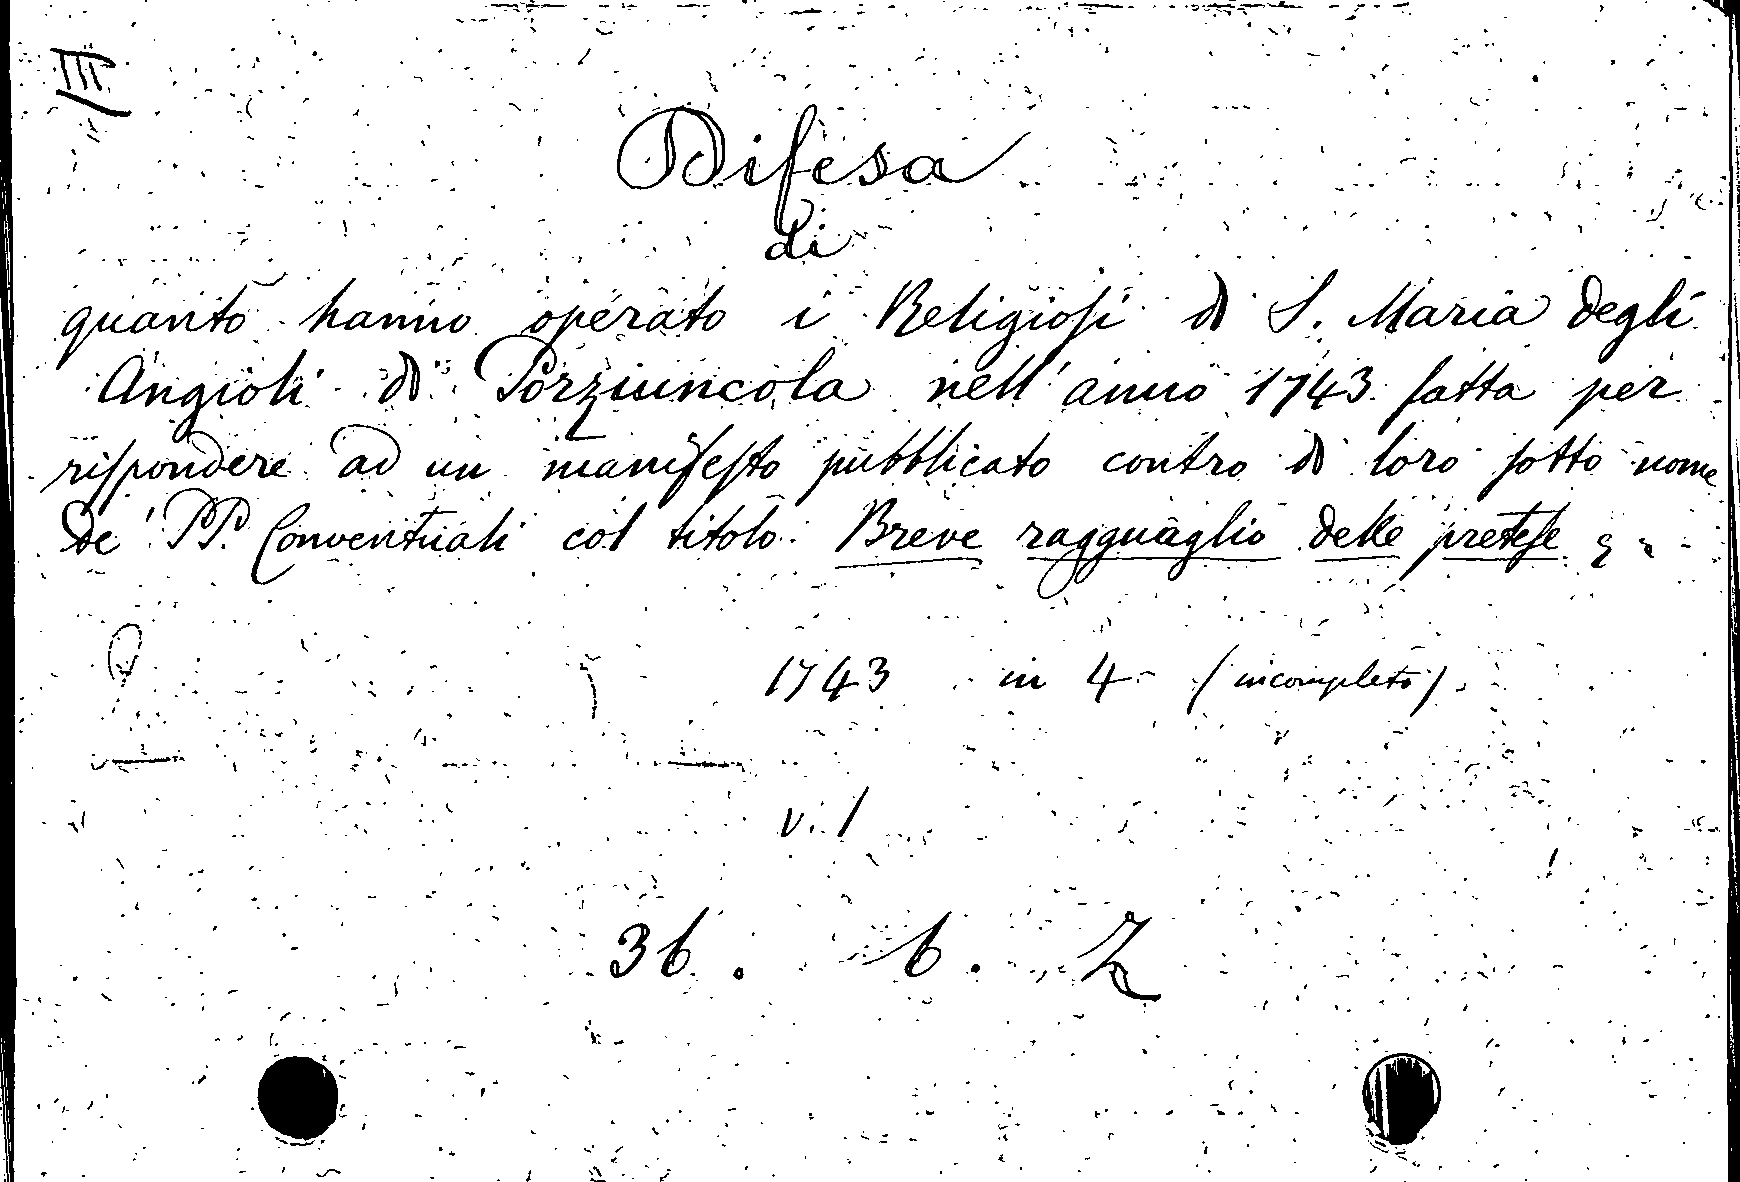 III
Difesa
di
quanto hanno operato i Religiosi di S. Maria degli
Angioli di Porziuncola nell'anno 1743 fatta per
rispondere ad un manifesto pubblicato contro di loro sotto nome
de' PP. Conventuali col titolo: Breve ragguaglio delle pretese
1743 in 4- (incompleto)
v. 1
36. 6. Z